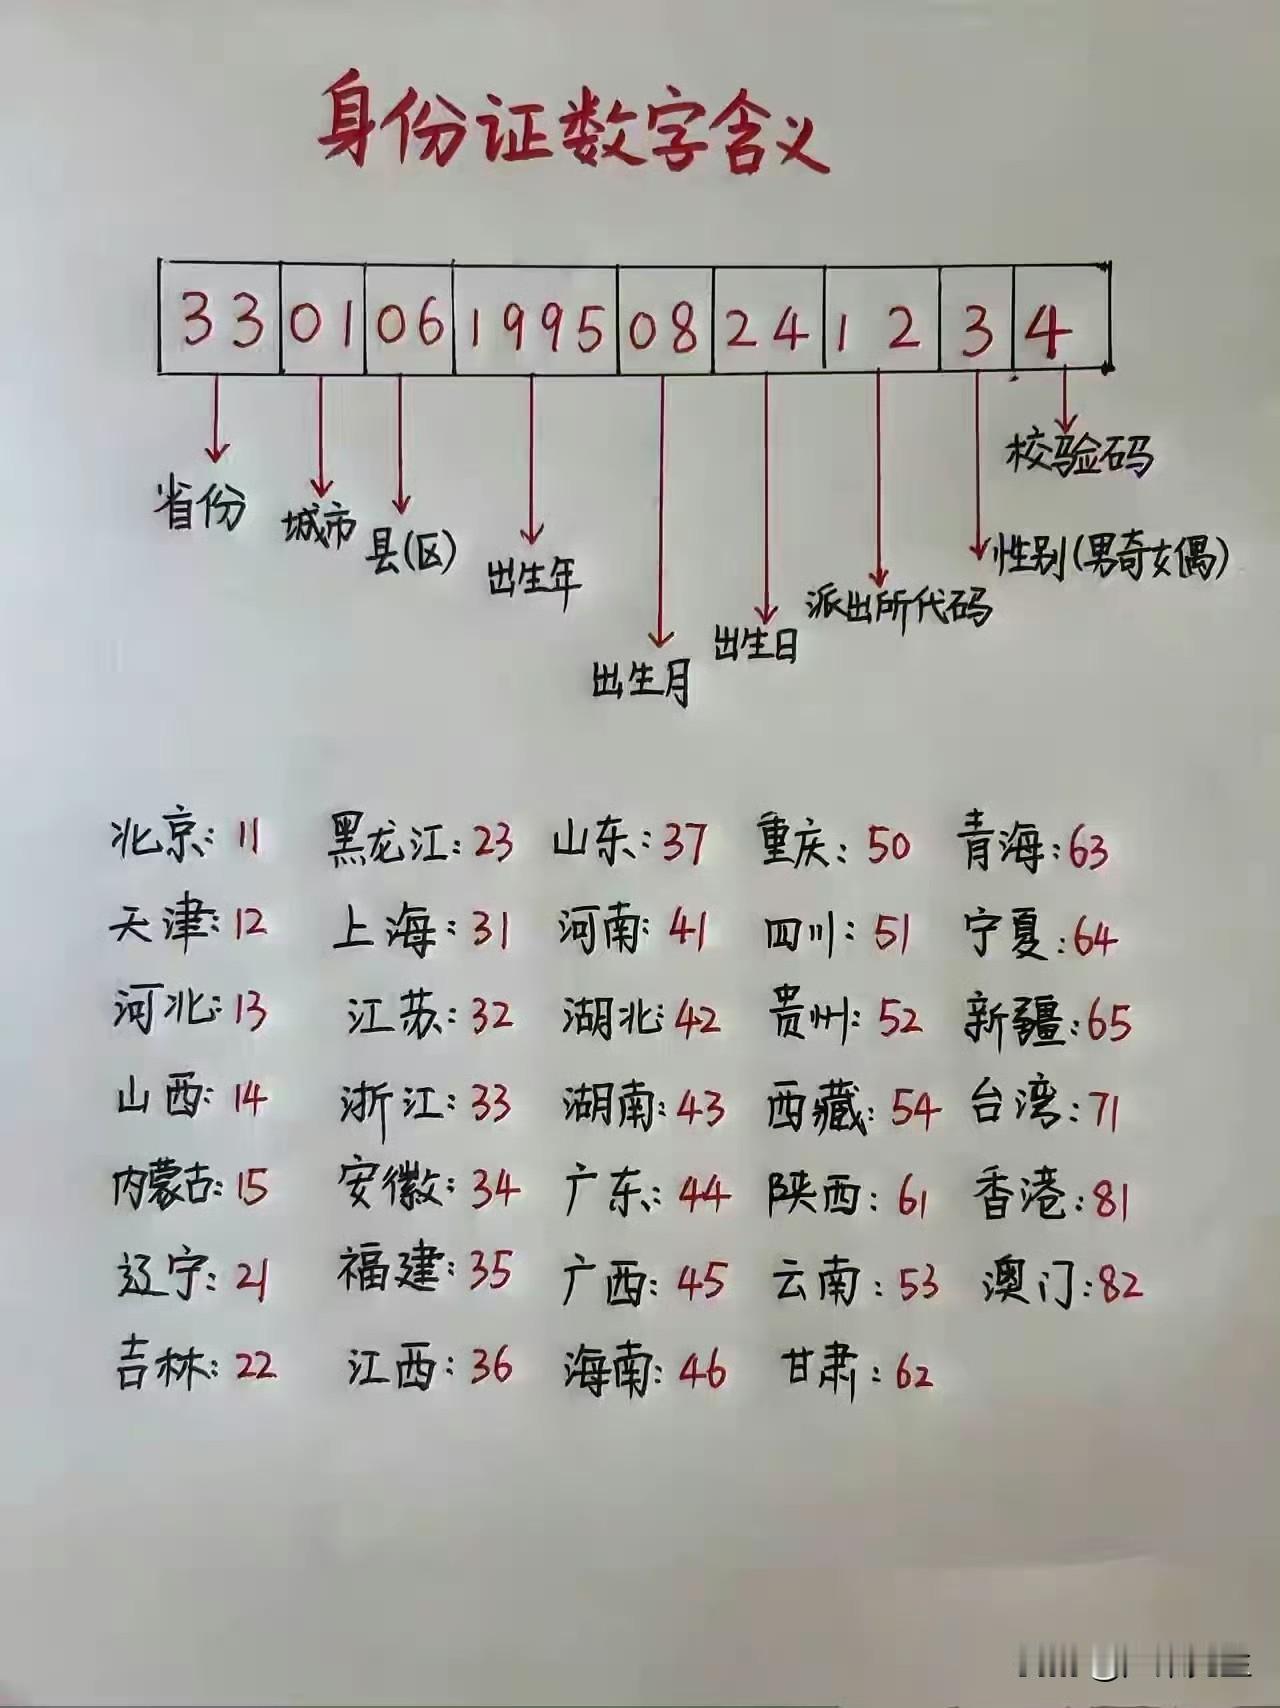 身份证数字含义
33 01 06 1995 08 24 12 3 4
校验码
省份 城市 县(区) 出生年 性别(男奇女偶)
派出所代码
出生日
出生月
北京:11 黑龙江:23 山东:37 重庆:50 青海:63
天津:12 上海:31 河南:41 四川:51 宁夏:64
河北:13 江苏:32 湖北:42 贵州:52 新疆:65
山西:14 浙江:33 湖南:43 西藏:54 台湾:71
内蒙古:15 安徽:34 广东:44 陕西:61 香港:81
辽宁:21 福建:35 广西:45 云南:53 澳门:82
吉林:22 江西:36 海南:46 甘肃:62